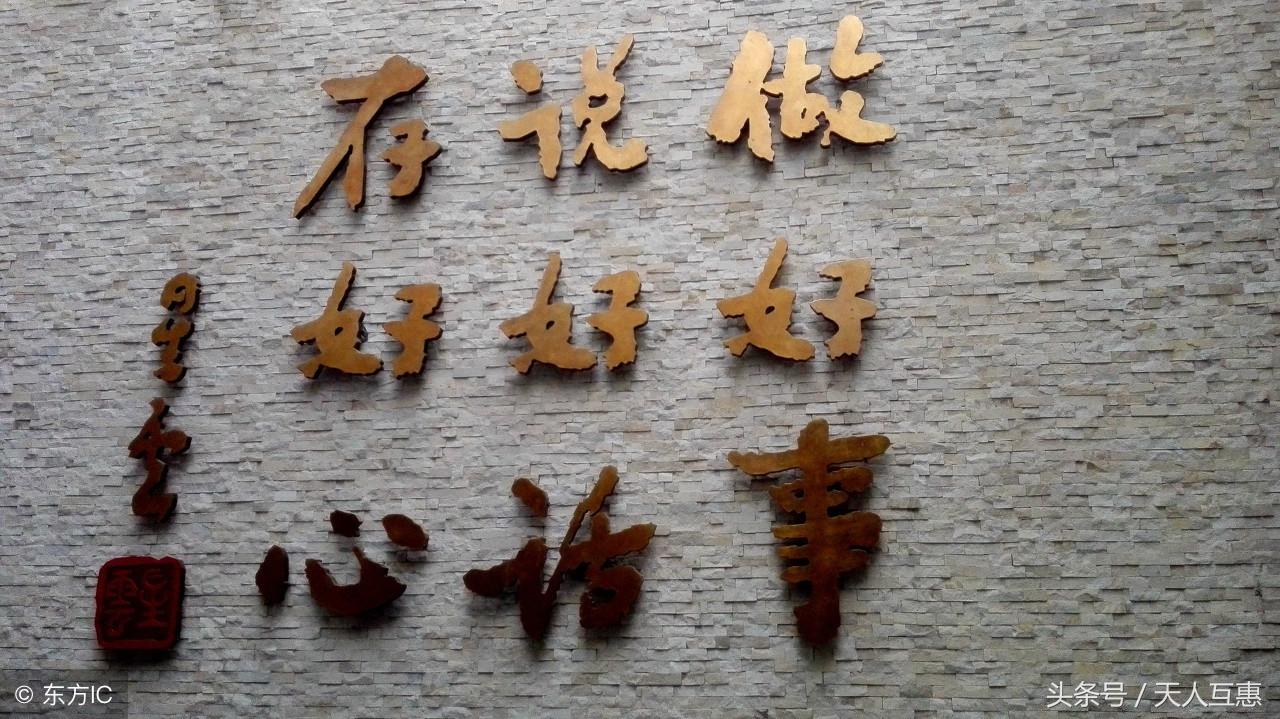 做好事
说好话
存好心
星云
星雲
© 东方IC
头条号 / 天人互惠